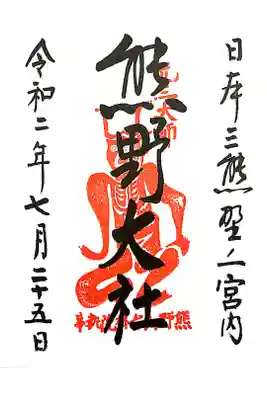 日本三熊野ノ宮内
熊野大社
令和二年七月二十五日